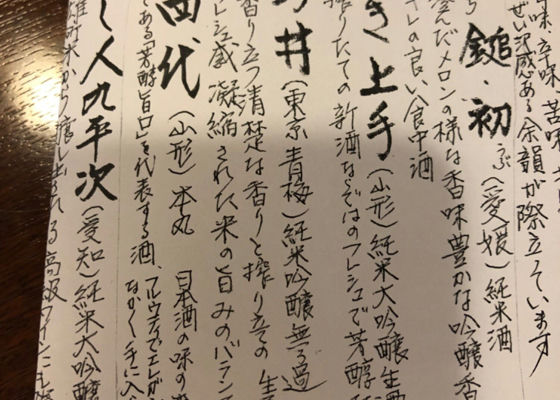 味 辛味 苦味
ぜい沢感ある余韻が際立っています
鎚・初 (愛媛)純米酒
んだメロンの様な香味豊かな吟醸香
キレの良い食中酒
き上手 (山形)純米大吟醸生酒
搾りたての新酒ならではのフレッシュで芳醇
井 (東京青梅)純米吟醸無ろ過
香り立つ清楚な香りと搾り立ての生
レッシュ感 凝縮された米の旨みのバラン
四代 (山形)本丸 日本酒の味の
である「芳醇旨口」を代表する酒、フルウティでエレガ
なかなか手に入
人九平次 (愛知)純米大吟醸
田錦米から醸し出される高級ワインに